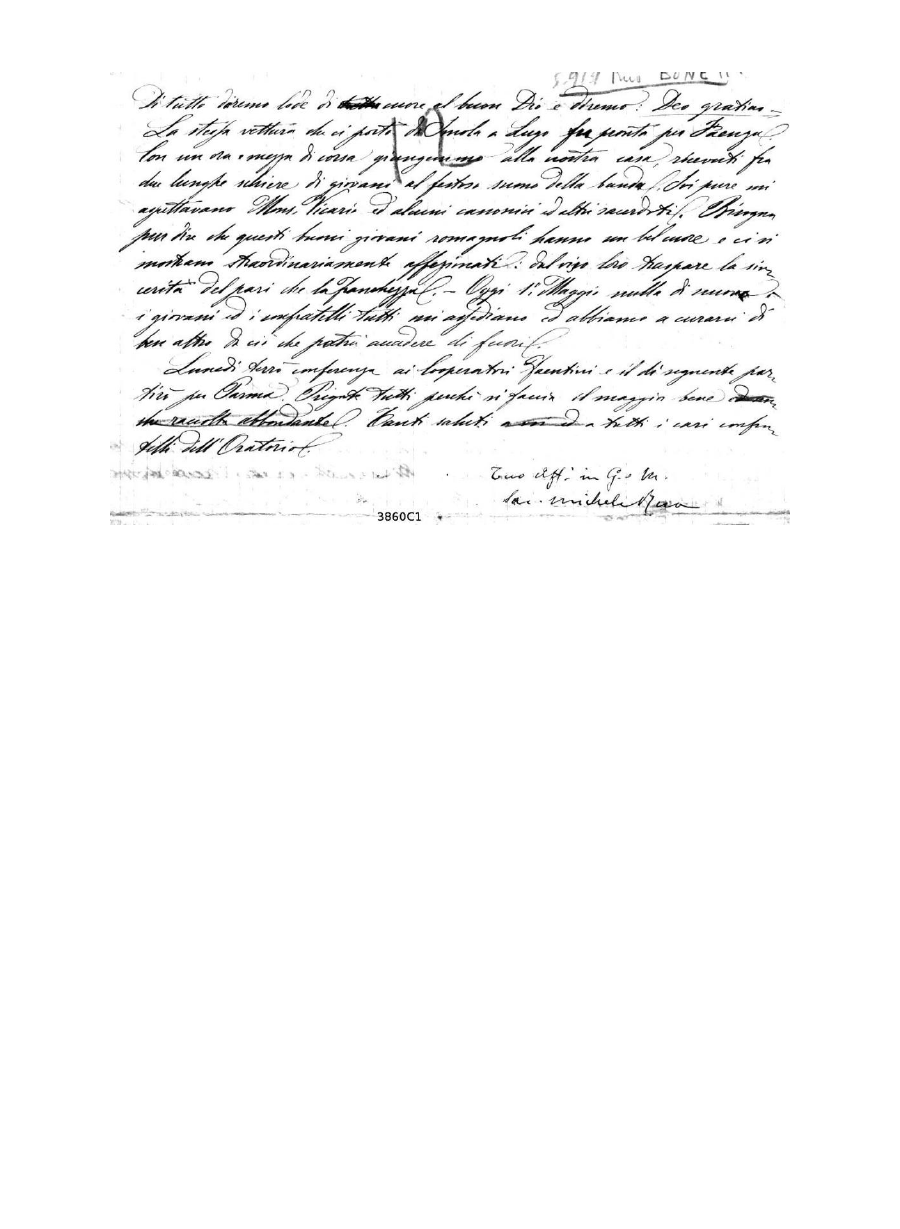 S.9191 Rua BONETTI
Di tutto daremo lode di tutto cuore al buon Dio e diremo: Deo gratias. =
La stessa vettura che ci portò da Imola a Lugo fu pronta per Faenza.
Con un ora e mezza di corsa giungemmo alla nostra casa, ricevuti fra
due lunghe schiere di giovani al festoso suono della banda. Ivi pure mi
aspettavano Mons. Vicario ed alcuni canonici ed altri sacerdoti. Bisogna
pur dire che questi buoni giovani romagnoli hanno un bel cuore e ci si
mostrano straordinariamente affezionati: dal viso loro traspare la sin-
cerità del pari che la franchezza. - Oggi 1° Maggio nulla di nuovo
i giovani ed i confratelli tutti mi assediano ed abbiamo a curarci di
ben altro da ciò che potrà accadere di fuori.
Lunedì terrò conferenza ai Cooperatori Faentini e il dì seguente par-
tirò per Parma. Pregate tutti perchè si faccia il maggior bene
che raccolta abbondante. Tanti saluti a tutti i cari confra-
telli dell'Oratorio.
Tuo aff. in G. e M.
Sac. Michele Rua
3860C1